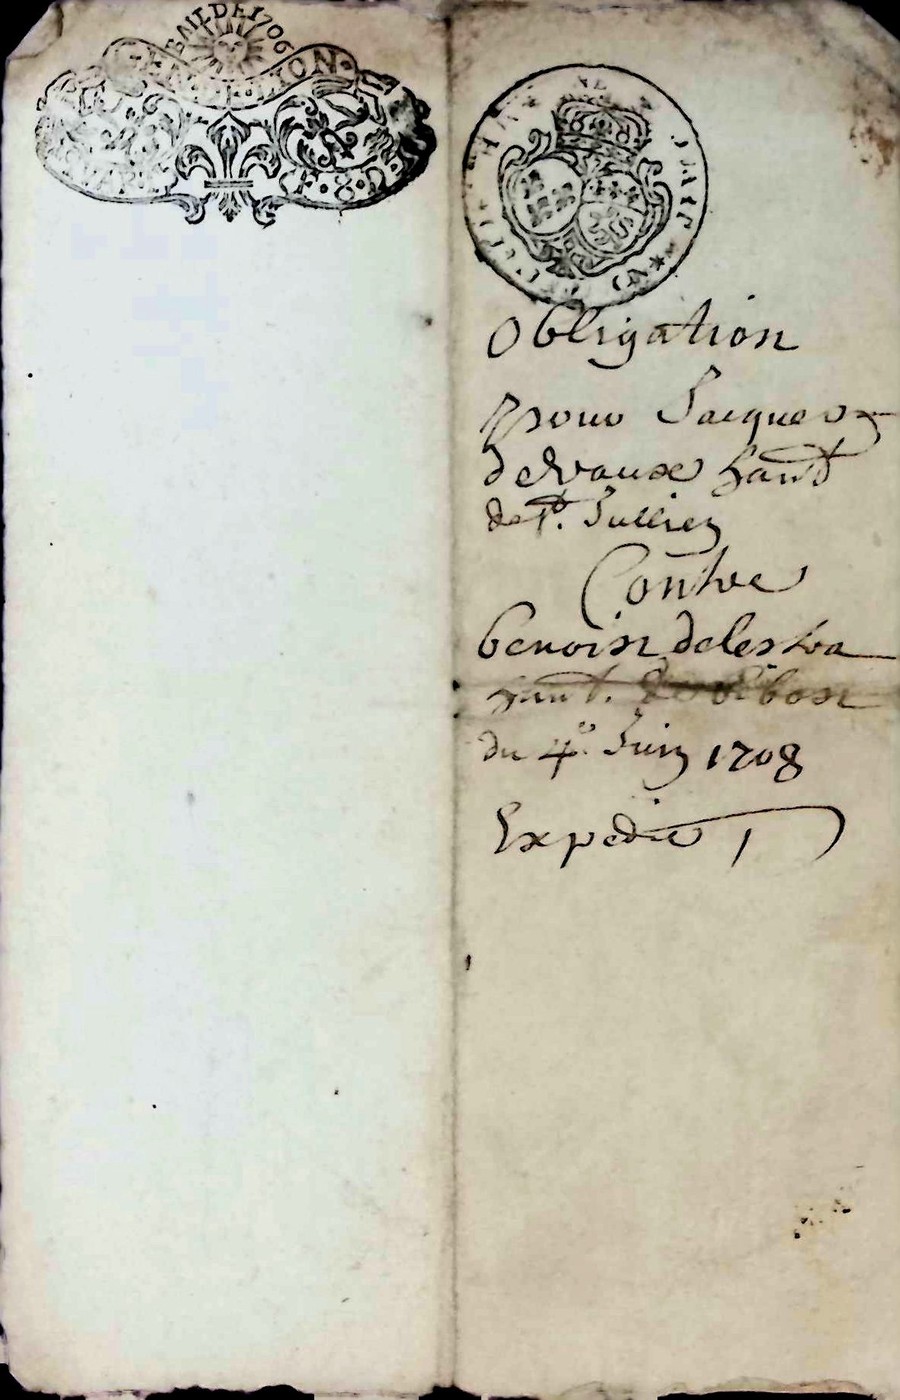 BAIL DE 1706
LION
Obligation
pour Jacques
deveaux hant
de St. Jullien
Contre
benoist delestra
hant.
du 4e. Juin 1708
Expedie